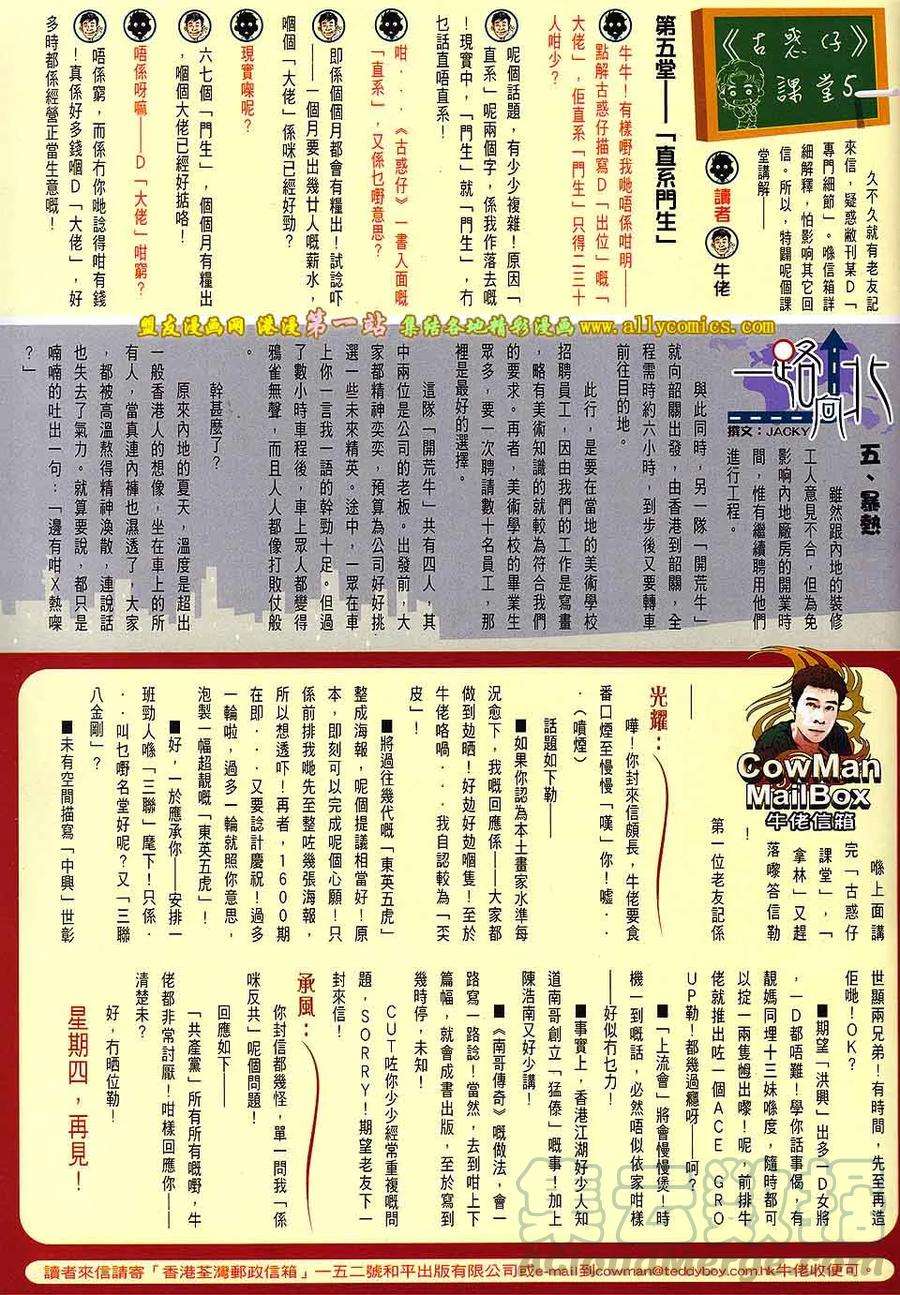 《古惑仔》
課堂5
久不久就有老友記
來信，疑惑敝刊某D「
專門細節」。喺信箱詳
細解釋，怕影响其它回
信。所以，特闢呢個課
堂講解——
讀者
牛佬
第五堂——「直系門生」
牛牛！有樣嘢我哋唔係咁明——
點解古惑仔描寫D「出位」嘅「
大佬」，佢直系「門生」只得二三十
人咁少？
呢個話題，有少少複雜！原因「
直系」呢兩個字，係我作落去嘅
！現實中，「門生」就「門生」，冇
乜話直唔直系！
咁．．．《古惑仔》一書入面嘅
「直系」，又係乜嘢意思？
即係個個月都會有糧出！試諗吓
——一個月要出幾廿人嘅薪水，
嗰個「大佬」係咪已經好勁？
現實㗎呢？
六七個「門生」，個個月有糧出
，嗰個大佬已經好掂咯！
唔係呀嘛——D「大佬」咁窮？
唔係窮，而係冇你哋諗得咁有錢
！真係好多錢嗰D「大佬」，好
多時都係經營正當生意嘅！
盟友漫画网 港漫第一站 集结各地精彩漫画 www.allycomics.com
一路向北
撰文：JACKY
五、暴熱
雖然跟內地的裝修
工人意見不合，但為免
影响內地廠房的開業時
間，惟有繼續聘用他們
進行工程。
與此同時，另一隊「開荒牛」
就向韶關出發，由香港到韶關，全
程需時約六小時，到步後又要轉車
前往目的地。
此行，是要在當地的美術學校
招聘員工，因由我們的工作是寫畫
，略有美術知識的就較為符合我們
的要求。再者，美術學校的畢業生
眾多，要一次聘請數十名員工，那
裡是最好的選擇。
這隊「開荒牛」共有四人，其
中兩位是公司的老板。出發前，大
家都精神奕奕，預算為公司好好挑
選一些未來精英。途中，一眾在車
上你一言我一語的幹勁十足。但過
了數小時車程後，車上眾人都變得
鴉雀無聲，而且人人都像打敗仗般
。
幹甚麼了？
原來內地的夏天，溫度是超出
一般香港人的想像，坐在車上的所
有人，當真連內褲也濕透了，大家
，都被高溫熬得精神渙散，連說話
也失去了氣力。就算要說，都只是
喃喃的吐出一句：「邊有咁X熱㗎
？」
CowMan
MailBox
牛佬信箱
喺上面講
完「古惑仔
課堂」，「
拿林」又趕
落嚟答信勒
！
第一位老友記係
——
光耀：
嘩！你封來信頗長，牛佬要食
番口煙至慢慢「嘆」你！噓．．
．（噴煙）
話題如下勒——
■如果你認為本土畫家水準每
況愈下，我嘅回應係——大家都
做到攰晒！好攰好攰嗰隻！至於
牛佬咯喎．．．我自認較為「奀
皮」！
■將過往幾代嘅「東英五虎」
整成海報，呢個提議相當好！原
本，即刻可以完成呢個心願！只
係前排我哋先至整咗幾張海報，
所以想透吓！再者，1600期
在即．．．又要諗計慶祝！過多
一輪啦，過多一輪就照你意思，
泡製一幅超靚嘅「東英五虎」！
■好，一於應承你——安排一
班勁人喺「三聯」麾下！只係．
．．叫乜嘢名堂好呢？又「三聯
八金剛」？
■未有空間描寫「中興」世彰
世顯兩兄弟！有時間，先至再造
佢哋！OK？
■期望「洪興」出多一D女將
，一D都唔難！學你話事偈，有
靚媽同埋十三妹喺度，隨時都可
以掟一兩隻乸出嚟！呢，前排牛
佬就推出咗一個ACE GRO
UP勒！都幾過癮呀——呵？
■「上流會」將會慢慢煲！時
機一到嘅話，必然唔似依家咁樣
——好似冇乜力！
■事實上，香港江湖好少人知
道南哥創立「猛傣」嘅事！加上
陳浩南又好少講！
■《南哥傳奇》嘅做法，會一
路寫一路諗！當然，去到咁上下
篇幅，就會成書出版，至於寫到
幾時停，未知！
CUT咗你少少經常重複嘅問
題，SORRY！期望老友下一
封來信！
承風：
你封信都幾怪，單一問我「係
咪反共」呢個問題！
回應如下——
「共產黨」所有所有嘅嘢，牛
佬都非常討厭！咁樣回應你——
清楚未？
好，冇晒位勒！
星期四，再見！
讀者來信請寄「香港荃灣郵政信箱」一五二號和平出版有限公司或e-mail到cowman@teddyboy.com.hk牛佬收便可。